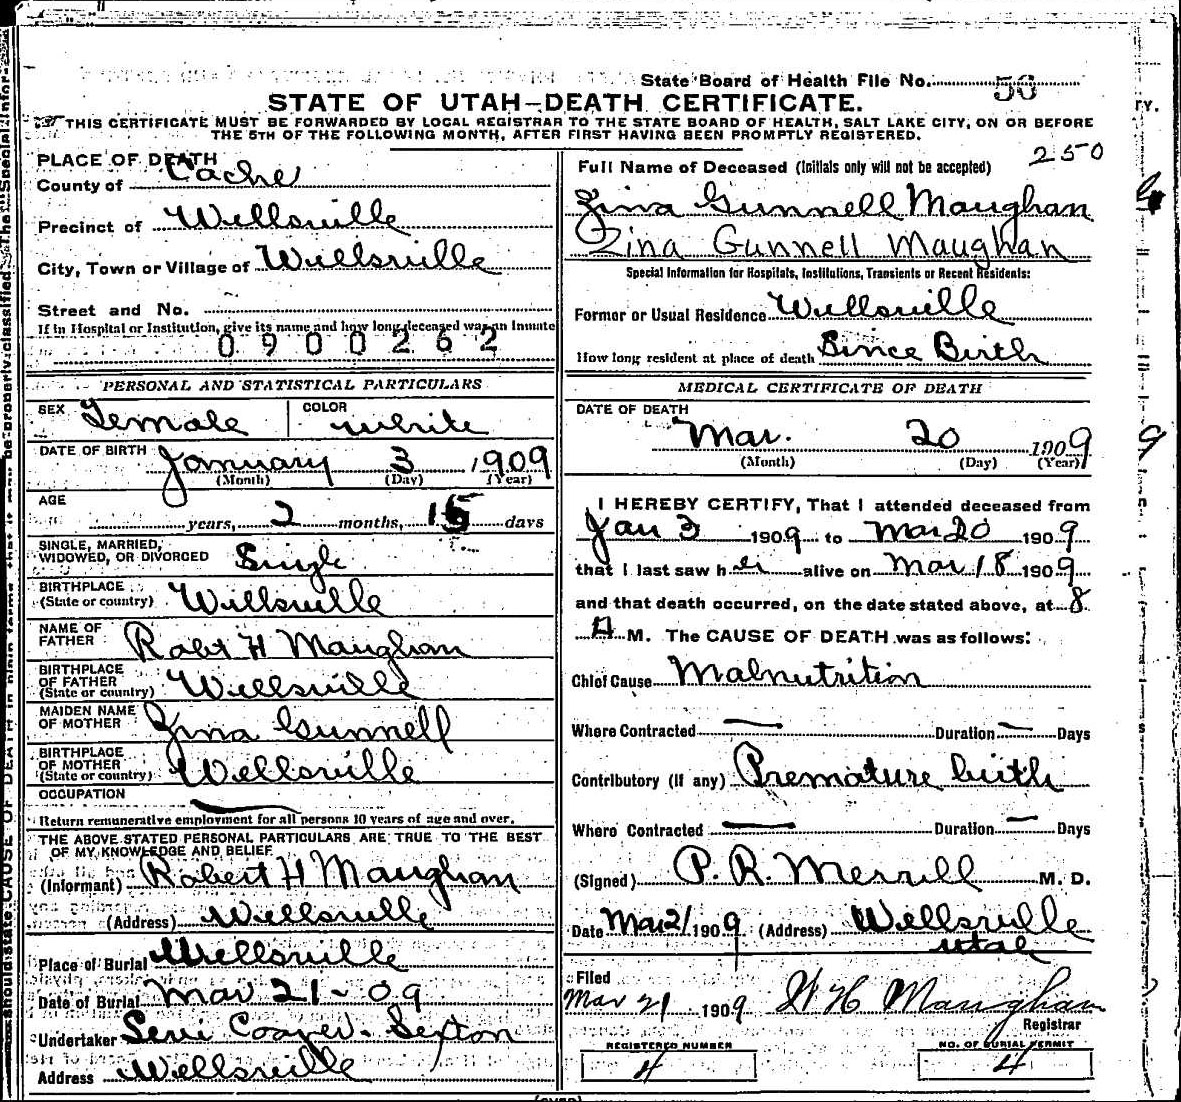 State Board of Health File No. 56
STATE OF UTAH—DEATH CERTIFICATE.
THIS CERTIFICATE MUST BE FORWARDED BY LOCAL REGISTRAR TO THE STATE BOARD OF HEALTH, SALT LAKE CITY, ON OR BEFORE
THE 5TH OF THE FOLLOWING MONTH, AFTER FIRST HAVING BEEN PROMPTLY REGISTERED.
250
PLACE OF DEATH
County of Cache
Precinct of Wellsville
City, Town or Village of Wellsville
Street and No.
If in Hospital or Institution, give its name and how long deceased was an Inmate
0900262
PERSONAL AND STATISTICAL PARTICULARS
SEX Female COLOR White
DATE OF BIRTH January 3 1909
(Month) (Day) (Year)
AGE
years, 2 months, 15 days
SINGLE, MARRIED,
WIDOWED, OR DIVORCED Single
BIRTHPLACE
(State or country) Wellsville
NAME OF
FATHER Robt H Maughan
BIRTHPLACE
OF FATHER
(State or country) Wellsville
MAIDEN NAME
OF MOTHER Zina Gunnell
BIRTHPLACE
OF MOTHER
(State or country) Wellsville
OCCUPATION
Return remunerative employment for all persons 10 years of age and over.
THE ABOVE STATED PERSONAL PARTICULARS ARE TRUE TO THE BEST
OF MY KNOWLEDGE AND BELIEF
(Informant) Robert H Maughan
(Address) Wellsville
Place of Burial Wellsville
Date of Burial Mar 21-09
Undertaker Cooper - Sexton
Address Wellsville
Full Name of Deceased (Initials only will not be accepted)
Zina Gunnell Maughan
Zina Gunnell Maughan
Special Information for Hospitals, Institutions, Transients or Recent Residents:
Former or Usual Residence Wellsville
How long resident at place of death Since Birth
MEDICAL CERTIFICATE OF DEATH
DATE OF DEATH
Mar. 20 1909
(Month) (Day) (Year)
I HEREBY CERTIFY, That I attended deceased from
Jan 3 1909 to Mar 20 1909
that I last saw her alive on Mar 18 1909
and that death occurred, on the date stated above, at 8
A M. The CAUSE OF DEATH was as follows:
Chief Cause Malnutrition
Where Contracted — Duration — Days
Contributory (If any) Premature birth
Where Contracted — Duration — Days
(Signed) P. R. Merrill M. D.
Date Mar 21 1909 (Address) Wellsville
Utah
Filed
Mar 21 1909 H H Maughan
Registrar
REGISTERED NUMBER
4
NO. OF BURIAL PERMIT
4
(OVER)